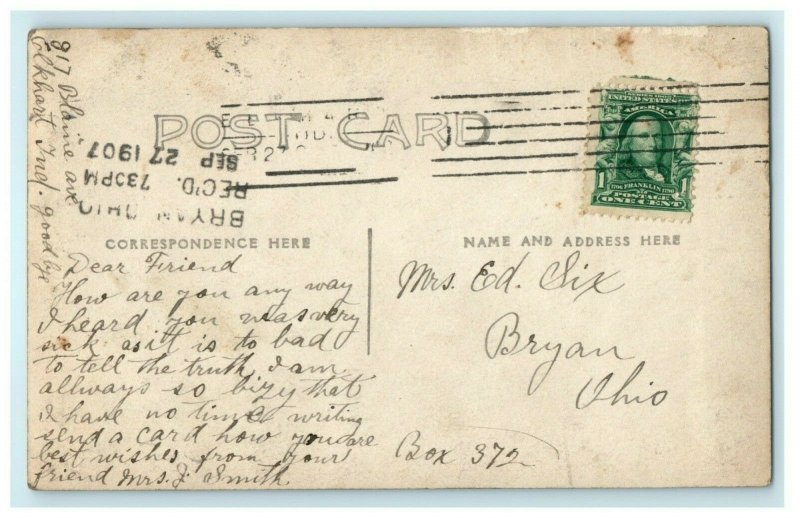 917 Blaine ave
Elkhart Ind. goodbye
POST CARD
SEP 27
BRYAN OHIO
REC'D. 730PM
SEP 27 1907
UNITED STATES
AMERICA
1706 FRANKLIN 1790
POSTAGE
1 ONE CENT 1
CORRESPONDENCE HERE
Dear Friend
How are you any way
I heard you was very
sick as it is to bad
to tell the truth I am
allways so bizy that
I have no time writing
send a card how you are
best wishes from your
friend Mrs. J. Smith
NAME AND ADDRESS HERE
Mrs. Ed. Six
Bryan
Ohio
Box 372